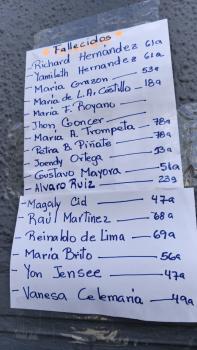 Fallecidos
- Richard Hernández 61a
- Yamileth Hernandez 61a
- Maria Corazon — 53a
- María de L.A. Castillo - 18a
- Maria F. Royano —
- Jhon Concer —
- Maria A. Trompeta — 78a
- Petra B. Piñate — 78a
- Joendy Ortega — 53a
- Gustavo Mayora — 56a
- Alvaro Ruiz — 23a
- Magaly Cid — 47a
- Raúl Martinez — 68a
- Reinaldo de Lima — 69a
- María Brito — 56a
- Yon Jensee — 47a
- Vanesa Celemaria — 49a